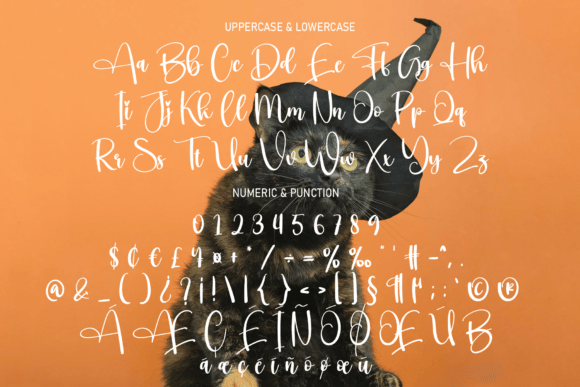 UPPERCASE & LOWERCASE
Aa Bb Cc Dd Ee Ff Gg Hh
Ii Jj Kk Ll Mm Nn Oo Pp Qq
Rr Ss Tt Uu Vv Ww Xx Yy Zz
NUMERIC & PUNCTION
0 1 2 3 4 5 6 7 8 9
$ ¢ € £ ¥ ¤ + * / ÷ = % ‰ " ' # - ^ , .
@ & _ ( ) ¿ ? ¡ ! \ | { } < > [ ] § ¶ ; : ` © ®
Á Æ Ç É Í Ñ Ó Ø Œ Ú ß
á æ ç é í ñ ó ø œ ú